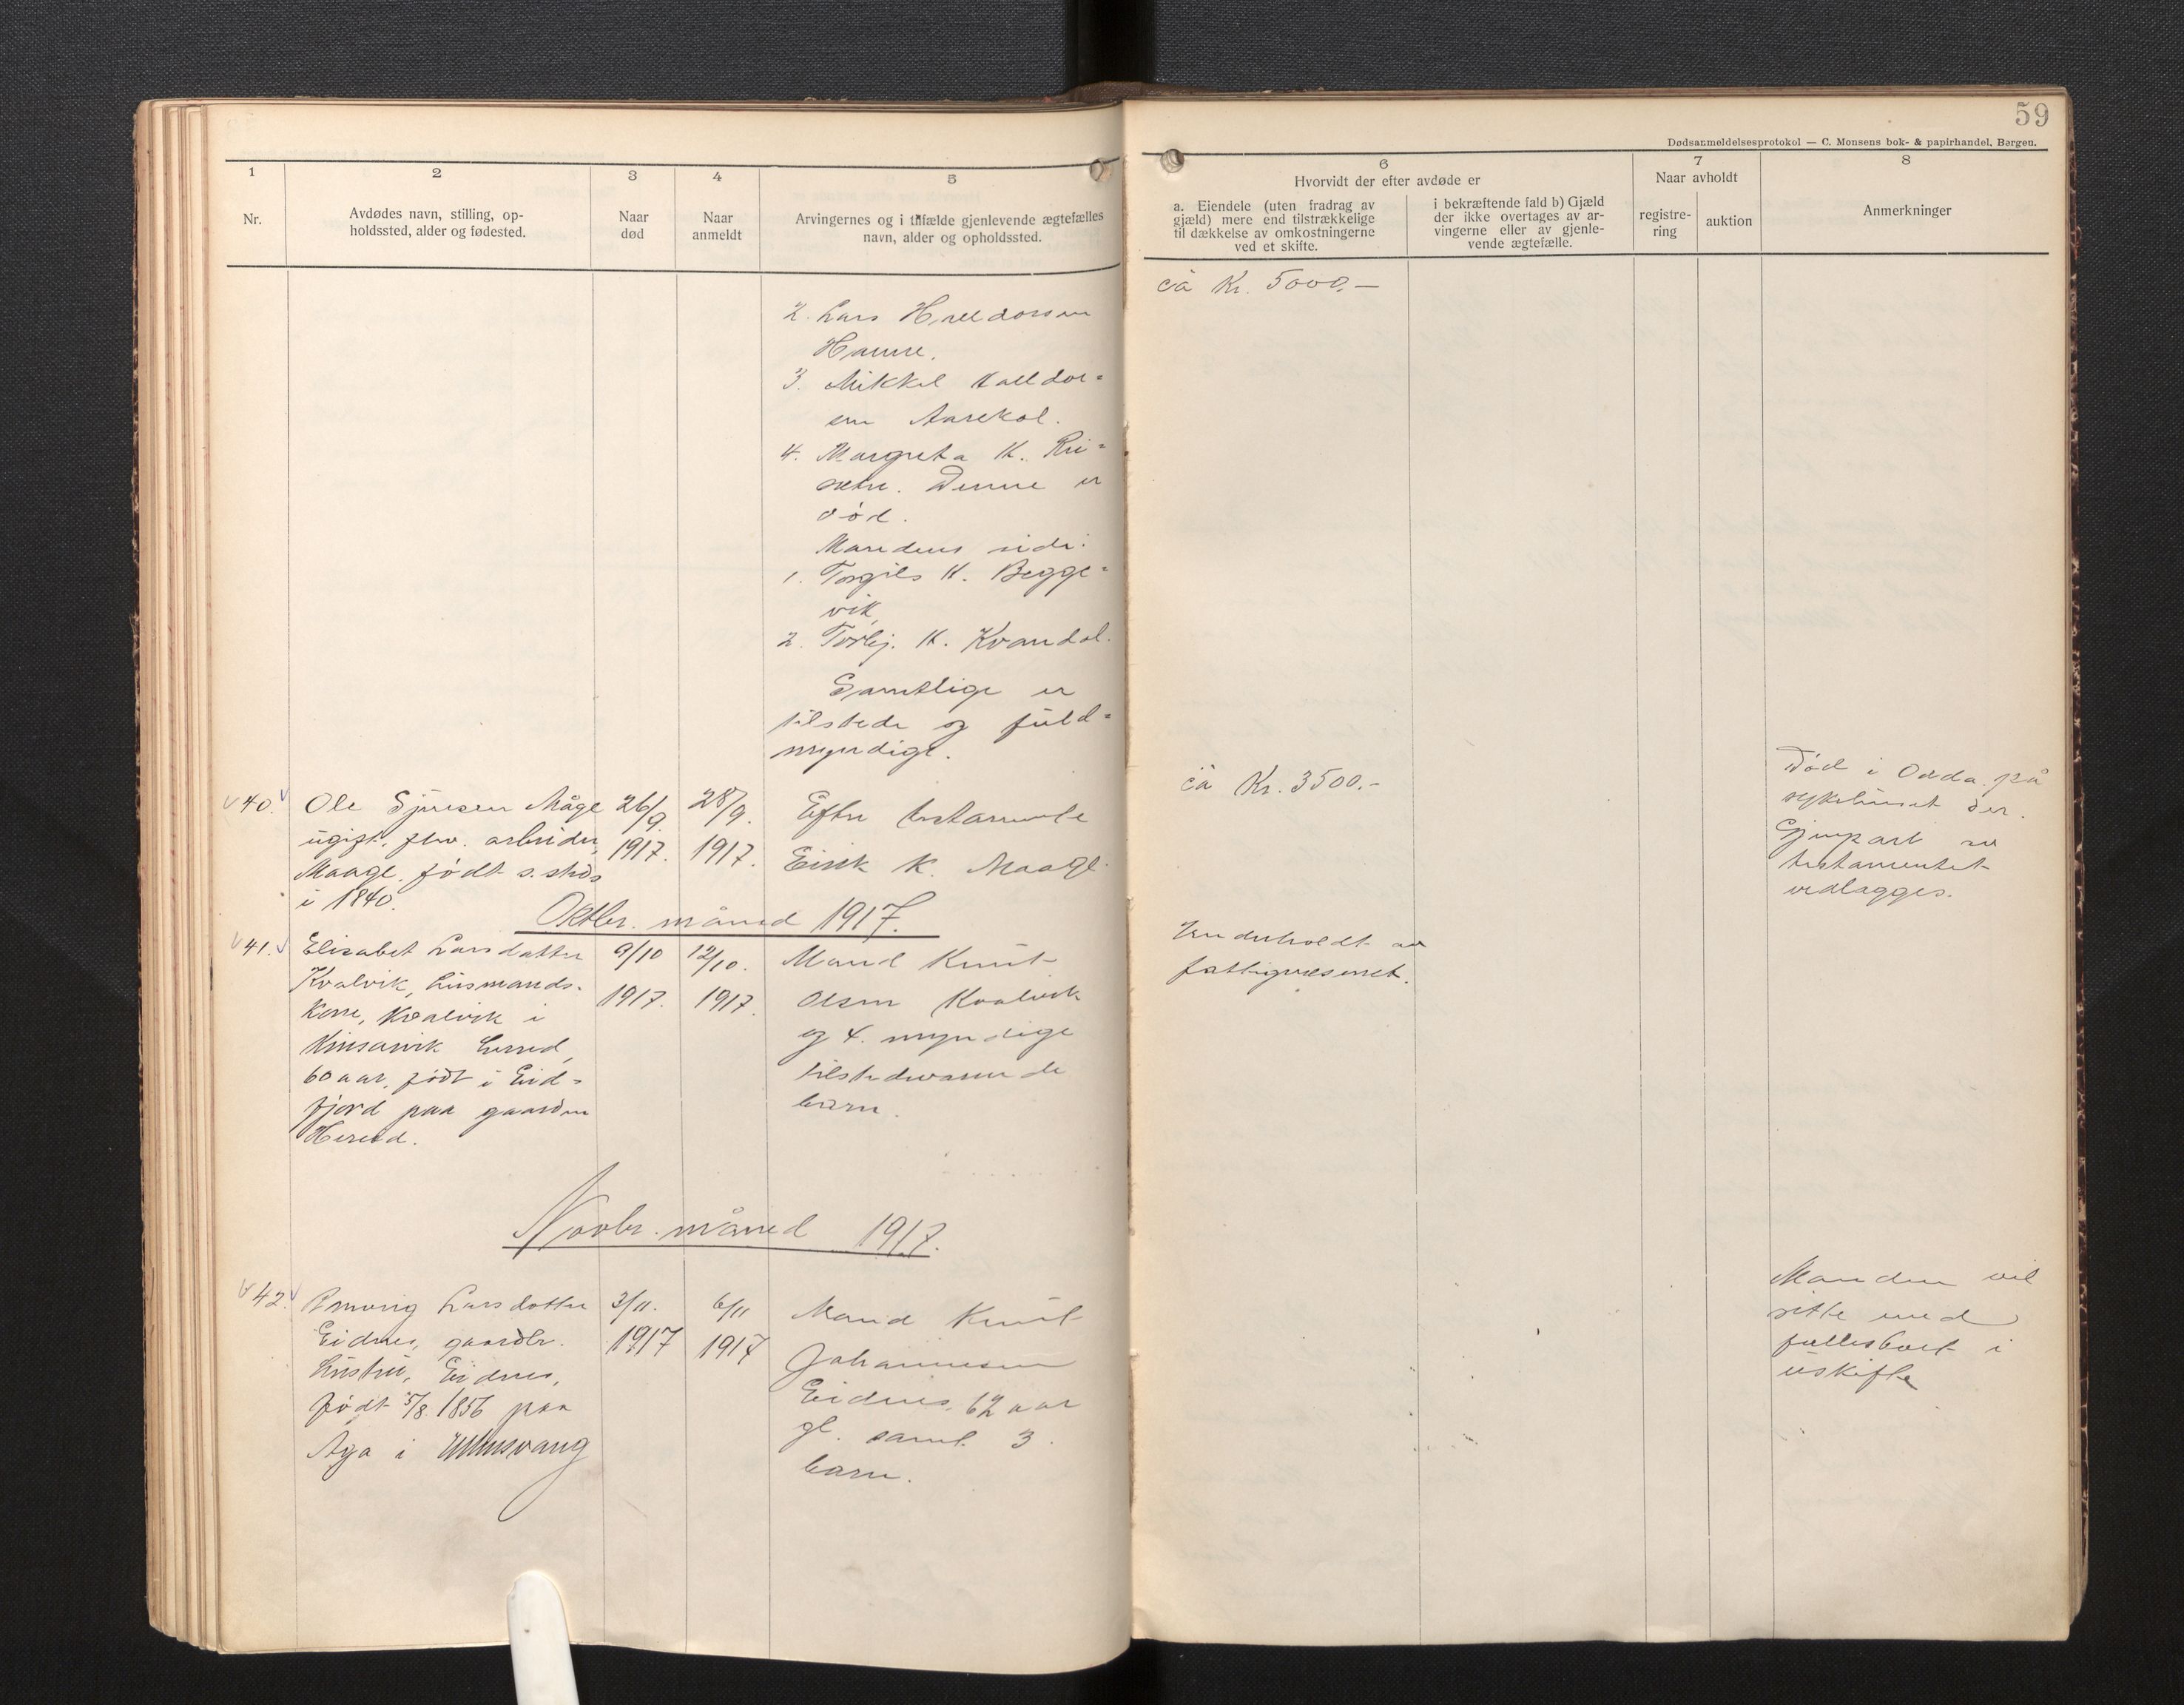 59
Dødsanmeldelsesprotokol — C. Monsens bok- & papirhandel, Bergen.
1
2
3
4
5
6
7
8
Nr.
Avdødes navn, stilling, op-
holdssted, alder og fødested.
Naar
død
Naar
anmeldt
Arvingernes og i tilfælde gjenlevende ægtefælles
navn, alder og opholdssted.
Hvorvidt der efter avdøde er
a. Eiendele (uten fradrag av
gjæld) mere end tilstrækkelige
til dækkelse av omkostningerne
ved et skifte.
i bekræftende fald b) Gjæld
der ikke overtages av ar-
vingerne eller av gjenle-
vende ægtefælle.
Naar avholdt
registre-
ring
auktion
Anmerkninger
2. Lars Halldorsen
Hamre.
3. Mikkel Halldor=
sen
4. Margreta H. Rei=
sete. Denne er
død.
Mandens side:
1. Torgils H. Begge=
vik
2. Torbj. H. Kvandal.
Samtlige er
tilstede og fuld=
myndige.
ca Kr. 5000.—
40.
Ole Sjursen Måge
ugift, fhv. arbeider,
Maage, født s. steds
i 1840.
26/9.
1917.
28/9.
1917.
Efter testamente
Eirik K. Maage.
ca Kr. 3500.-
Død i Odda på
sykehuset der.
Gjenpart av
testamentet
vedlægges.
Oktbr. måned 1917.
41.
Elisabet Larsdatter
Kvalvik, husmands-
kone, Kvalvik i
Kinsarvik herred,
60 aar, født i Eid=
fjord paa gaarden
Hereid.
9/10
1917.
12/10.
1917.
Mand Knut
Olsen Kvalvik
og 4. myndige
tilstedeværende
barn.
Underholdt av
fattigvæsenet.
Novbr. måned 1917.
42.
Larsdatter
Eidnes, gaardbr.
hustru, Eidnes,
født 5/8 1856 paa
Aga i Ullensvang
3/11.
1917
6/11
1917
Mand Knut
Johannesen
Eidnes, 62 aar
gl. samt 3
barn.
Manden vil
sitte med
fællesboet i
uskifte